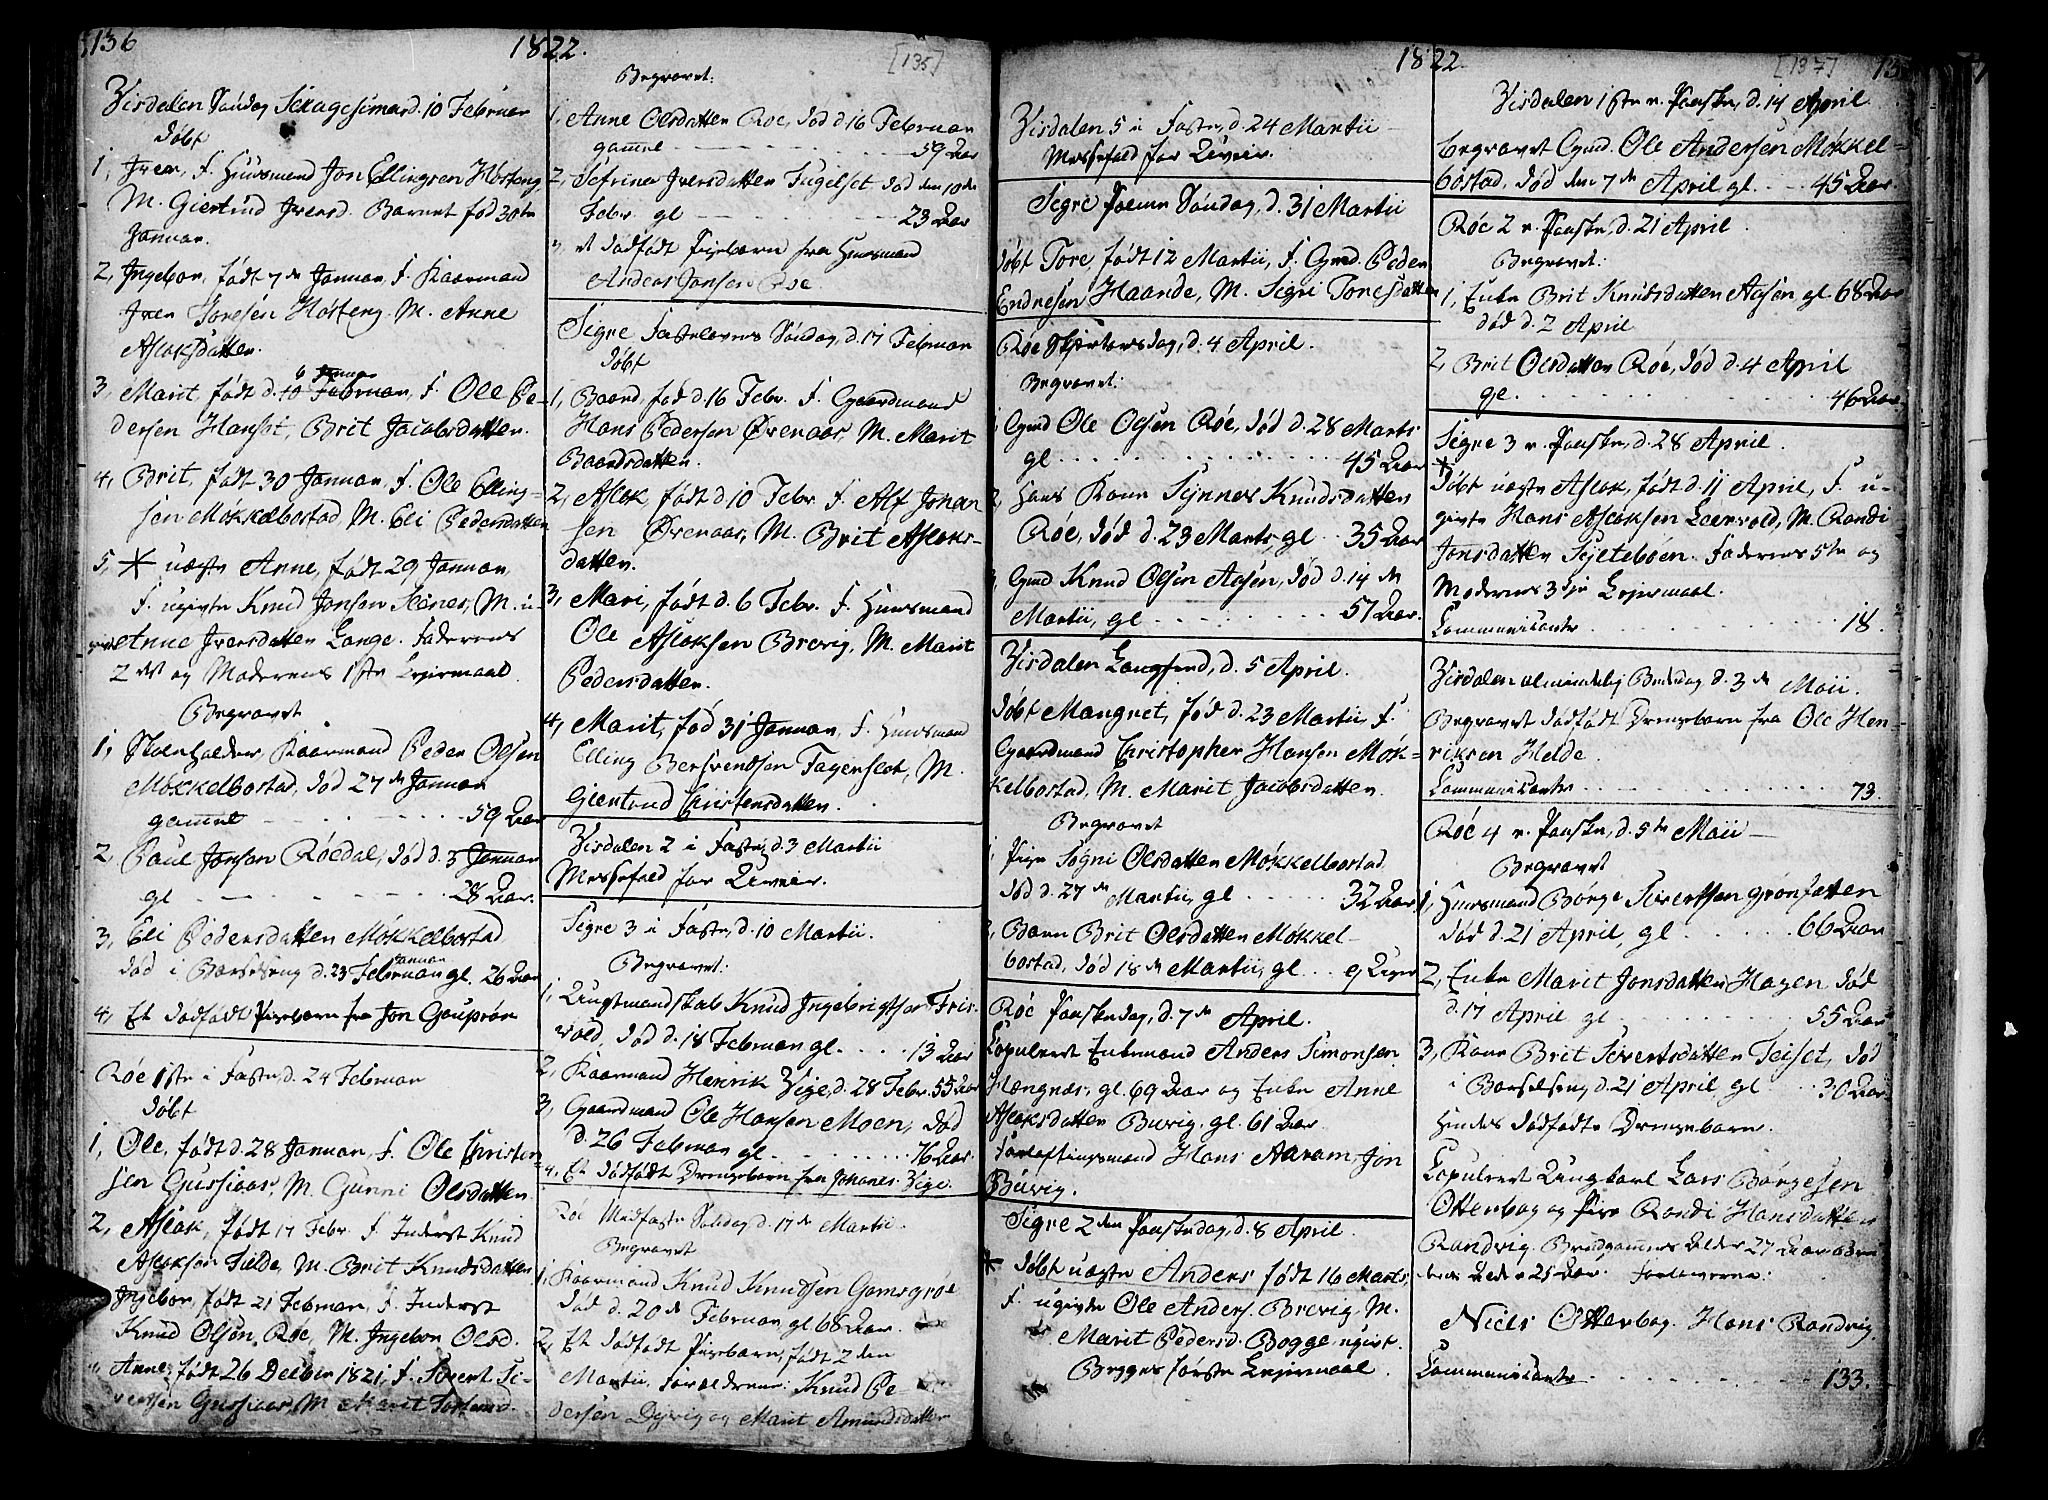 136
1822.
[135]
Visdalen Søndag Sexagesima d. 10 Februar
døbt
1, Iver, F. Huusmand Jon Ellingsen Høsteng
M. Giertrud Iversd. Barnet fød 30te
Januar.
2, Ingebor, født 7de Januar, F. Kaarmand
Iver Toresen Høsteng. M. Anne
Aslaksdatten.
3, Marit født d. 6 Januar, F. Ole Pe-
dersen Hanset, Brit Jacobsdatten.
4, Brit, født 30 Januar, F. Ole Elling-
sen Møkkelbostad M. Eli Pedersdatten
5, * uægte Anne, født 29 Januar,
F. ugivte Knud Jonsen M. u-
Anne Iversdatten Lange. Faderens
2det og Moderens 1ste Lejermaal
Begravet
1, Skoleholder, Kaarmand Peder Olsen
Møkkelbostad, død 27de Januar
gamel 59 Aar
2, Paul Jonsen Røedal, død d. 3 Januar
gl 28 Aar.
3, Eli Pedersdatten Møkkelbostad
død i Barselseng d. 23 Januar gl. 26 Aar
4, Et dødfødt Pigebarn fra Jon Gouprør
Røe 1ste i Faste, d. 24 Februar
døbt
1, Ole, født d. 28 Januar, F. Ole Christen
sen Gussiaas, M. Gunni Olsdatten
2, Aslak, født 17 Febr. F. Inderst Knud
Aslaksen Fielde, M. Brit Knudsdatten
Ingebor, født 21 Februar, F. Inderst
Knud Olsen Røe, M. Ingebor Olsd.
Anne, født 26 Decbr 1821, F. Sivert Si-
vertsen Gussiaas, M Marit
Begravet:
1, Anne Olsdatten Roe, død d. 16 Februar
gamel 59 Aar
2, Sefrina Iversdatten Fugelset død den 10de
Febr. gl 23 Aar
3, et dødfødt Pigebarn fra Huusmand
Anders Jonsen Roe.
Sigre Fastelavns Søndag, d. 17 Februar
døbt
1, Baard, fød 16 Febr. F. Gaardmand
Hans Pedersen Øvenaas, M. Marit
Baardsdatten.
2, Aslak født d. 10 Febr. F. Alf Johan
sen Øvenaas, M. Brit Aslaks-
datten.
3, Mari, født d. 6 Febr. F. Huusmand
Ole Aslaksen Brevig, M. Marit
Pedersdatten.
4, Marit, fød 31 Januar, F. Huusmand
Elling Bersvendsen Fagerslet, M.
Giertrud Christensdatten.
Visdalen 2 i Faste, d. 3 Martii
Messefald for Uveier.
Sigre 3 i Faste, d. 10 Martii.
Begravet:
1, Ungtmandskab Knud Ingebrigtsen Fris-
vold, død d. 18 Februar gl. 13 Aar
2, Kaarmand Henrik Vige, d. 28 Febr. 55 Aar
3, Gaardmand Ole Hansen Moen, død
d. 26 Februar gl. 76 Aar.
4, Et dødfødt Drengebarn fra Johanes Vige.
Røe Midfaste Søndag, d. 17de Martii.
Begravet
1, Kaarmand Knud Knudsen Gamsgrøe
død d. 20de Februar, gl. 68 Aar.
2, Et dødfødt Pigebarn, født 2 den
Martii, Forældrene: Knud Pe-
dersen Djevig og Marit Amundsdatten
1822.
[137]
Visdalen 5 i Faste, d. 24 Martii
Messefald for Uveier.
Sigre Palme Søndag, d. 31 Martii
døbt Tore, født 12 Martii, F. Gmd. Peder
Endresen Haande, M. Sigri Toresdatten
Røe Skjertorsdag, d. 4 April.
Begravet:
Gmd Ole Olsen Røe, død d. 28 Marts
gl. 45 Aar
2, Hans Kone Synnev Knudsdatten
Røe, død d. 23 Marts, gl. 35 Aar
3, Gmd Knud Olsen Aasen, død d. 14de
Martii, gl 57 Aar.
Visdalen Langfred, d. 5 April.
døbt Mangret, fød d. 23 Martii, F.
Gaardmand Christopher Hansen Møk-
kelbostad, M. Marit Jacobsdatten.
Begravet
1, Pige Sigri Olsdatten Møkkelbostad
død d. 27de Martii, gl 32 Aar
2, Barn Brit Olsdatten Møkkel-
bostad, død 18de Martii, gl. 9 Uger
Røe Paaskedag, d. 7de April.
Copuleret Enkemand Anders Simonsen
Hængnæs, gl. 69 Aar og Enke Anne
Aslaksdatten Buvig. gl. 61 Aar
Forloftningsmænd Hans Aaram, Jon
Buvig.
Sigre 2den Paaskedag, d. 8 April.
* døbt uægte Anders født 16 Marts,
F. ugivte Ole Anders. Brevig, M.
Marit Pedersd. Bogge, ugivt.
Begges første Lejermaal.
Visdalen 1ste e. Paaske, d. 14 April
begravet Gmd. Ole Andersen Møkkel-
bostad, død den 7de April gl. 45 Aar.
Røe 2 e. Paaske, d. 21 April.
Begravet:
1, Enke Brit Knudsdatten Aasen gl. 68 Aar
død d. 2 April
2, Brit Olsdatten Røe, død d. 4 April
gl. 46 Aar.
Sigre 3 e. Paaske, d. 28 April.
*
døbt uægte Aslak, født d. 11 April, F. u-
givte Hans Aslaksen Leervold, M. Randi
Jonsdatten Sjeltebøen. Faderens 5te og
Moderens 3die Lejermaal.
Communicanter 18.
Visdalen almindelig Bededag, d. 3de Maii.
Begravet dødfødt Drengebarn fra Ole Hen
riksen Helde.
Communicanter 73.
Røe 4 e. Paaske, d. 5te Maii
Begravet
1, Huusmand Børge Sivertsen Grønsetten
død d. 21 April, gl 66 Aar
2, Enke Marit Jonsdatten Hagen død
d. 17 April gl 55 Aar
3, Kone Brit Sivertsdatten Teiset, død
i Barselseng d. 21 April, gl 30 Aar.
Hendes dødfødte Drengebarn.
Copuleret Ungkarl Lars Børgesen
Otterbog og Pige Randi Hansdatten
Randvig. Brudgommens Alder 27 Aar, Bru
dens Alder 25 Aar. Forloverne:
Niels Otterbog. Hans Randvig.
Communicanter 133.